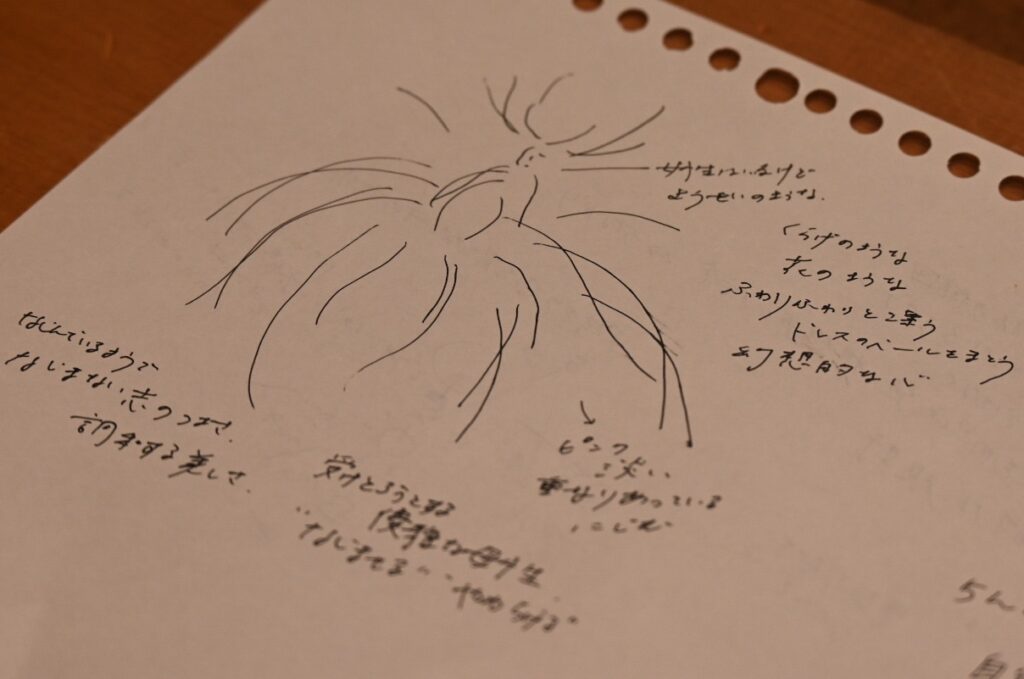 母性はいるけど
ようせいのような
くらげのような
花のような
ふわりふわりと舞う
ドレスのベールをまとう
幻想的な心
なじんでいるようで
なじまない志のつよさ
調和する美しさ
受けとろうとする
優雅な母性
"なじませる" "やわらげる"
ピンク
淡い
重なりあっている
にじむ
5ん
自